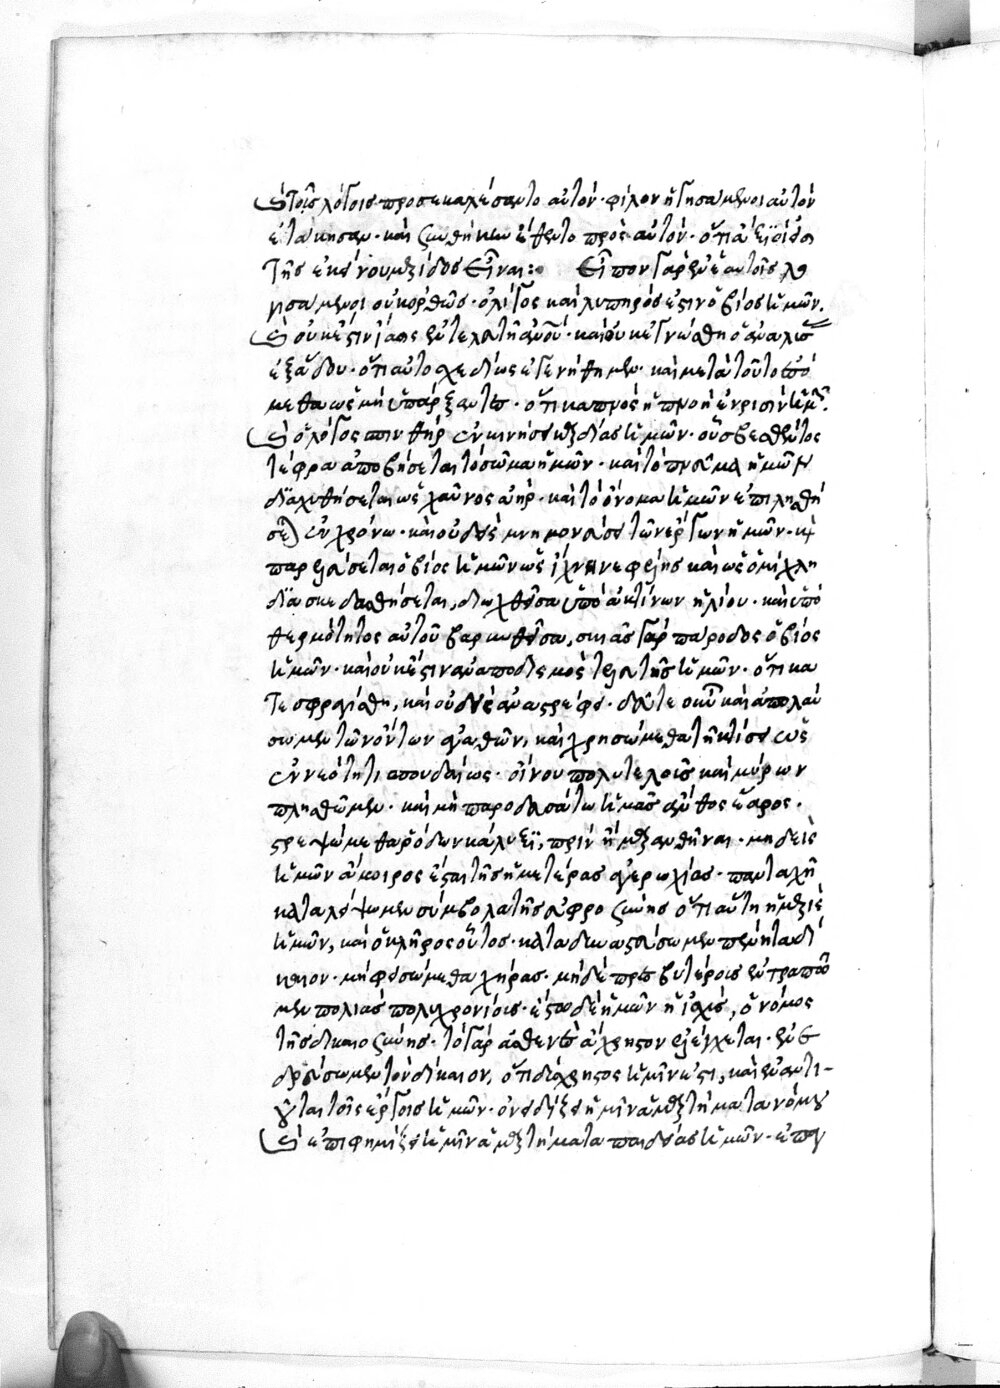 καὶ τοῖς λόγοις προσεκαλέσαντο αὐτόν· φίλον ἡγησάμενοι αὐτὸν
ἐτάκησαν· καὶ συνθήκην ἔθεντο πρὸς αὐτόν· ὅτι ἄξιοί εἰσι
τῆς ἐκείνου μερίδος εἶναι: Εἶπον γὰρ ἐν ἑαυτοῖς λο
γισάμενοι οὐκ ὀρθῶς· ὀλίγος καὶ λυπηρός ἐστιν ὁ βίος ἡμῶν.
καὶ οὐκ ἔστιν ἴασις ἐν τελευτῇ ἀνθρώπου· καὶ οὐκ ἐγνώσθη ὁ ἀναλύσας
ἐξ ᾅδου· ὅτι αὐτοσχεδίως ἐγενήθημεν· καὶ μετὰ τοῦτο ἐσό
μεθα ὡς μὴ ὑπάρξαντες· ὅτι καπνὸς ἡ πνοὴ ἐν ῥισὶν ἡμῶν.
καὶ ὁ λόγος σπινθὴρ ἐν κινήσει καρδίας ἡμῶν· οὗ σβεσθέντος
τέφρα ἀποβήσεται τὸ σῶμα ἡμῶν· καὶ τὸ πνεῦμα ἡμῶν
διαχυθήσεται ὡς χαῦνος ἀήρ· καὶ τὸ ὄνομα ἡμῶν ἐπιλησθή
σεται ἐν χρόνω· καὶ οὐδεὶς μνημονεύσει τῶν ἔργων ἡμῶν· καὶ
παρελεύσεται ὁ βίος ἡμῶν ὡς ἴχνη νεφέλης καὶ ὡς ὁμίχλη
διασκεδασθήσεται, διωχθεῖσα ὑπὸ ἀκτίνων ἡλίου· καὶ ὑπὸ
θερμότητος αὐτοῦ βαρυνθεῖσα, σκιᾶς γὰρ πάροδος ὁ βίος
ἡμῶν· καὶ οὐκ ἔστιν ἀναποδισμὸς τελευτῆς ἡμῶν· ὅτι κα
τεσφραγίσθη, καὶ οὐδεὶς ἀναστρέφει· δεῦτε οὖν καὶ ἀπολαύ
σωμεν τῶν ὄντων ἀγαθῶν, καὶ χρησώμεθα τῇ κτίσει ὡς
ἐν νεότητι σπουδαίως· οἴνου πολυτελοῦς καὶ μύρων
πλησθῶμεν· καὶ μὴ παροδευσάτω ἡμᾶς ἄνθος ἔαρος.
στεψώμεθα ῥόδων κάλυξι, πρὶν ἢ μαρανθῆναι· μηδεὶς
ἡμῶν ἄμοιρος ἔσται τῆς ἡμετέρας ἀγερωχίας· πανταχῆ
καταλείψωμεν σύμβολα τῆς εὐφροσύνης ὅτι αὕτη ἡ μερὶς
ἡμῶν, καὶ ὁ κλῆρος οὗτος· καταδυναστεύσωμεν πένητα δί
καιον· μὴ φεισώμεθα χήρας· μηδὲ πρεσβυτέροις ἐντραπῶ
μεν πολιὰς πολυχρονίοις· ἔστω δὲ ἡμῶν ἡ ἰσχὺς, ὁ νόμος
τῆς δικαιοσύνης· τὸ γὰρ ἀσθενὲς ἄχρηστον ἐλέγχεται· ἐνε
δρεύσωμεν τὸν δίκαιον, ὅτι δύσχρηστος ἡμῖν ἐστι, καὶ ἐναντι-
οῦται τοῖς ἔργοις ἡμῶν· ὀνειδίζει ἡμῖν ἁμαρτήματα νόμου
καὶ ἐπιφημίζει ἡμῖν ἁμαρτήματα παιδείας ἡμῶν· ἐπαγ